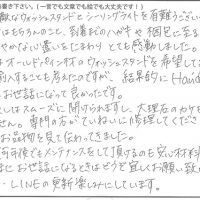 書き下さい。(一言でも文章でも絵でも大丈夫です！)
敵なウォッシュスタンドとシーリングライトを有難うござい
はもちろんのこと、到着までのハガキや梱包に至る
やかないい違いをこまわり とても感動しました。
はオールドパイン材のウォッシュスタンドを希望してお
購入することも考えたのですが、結果的にHand
お世話になって良かったです。
しはスムーズに開けられますし、大理石のわれも
せん。専門の方がていねいに修理してくださ
お品物を見て伝わってきました。
何年後でもメンテナンスをして頂けるのも安い材料
またお世話になるときはどうぞ宜しくお願い致
・LINEの更新楽しみにしています。